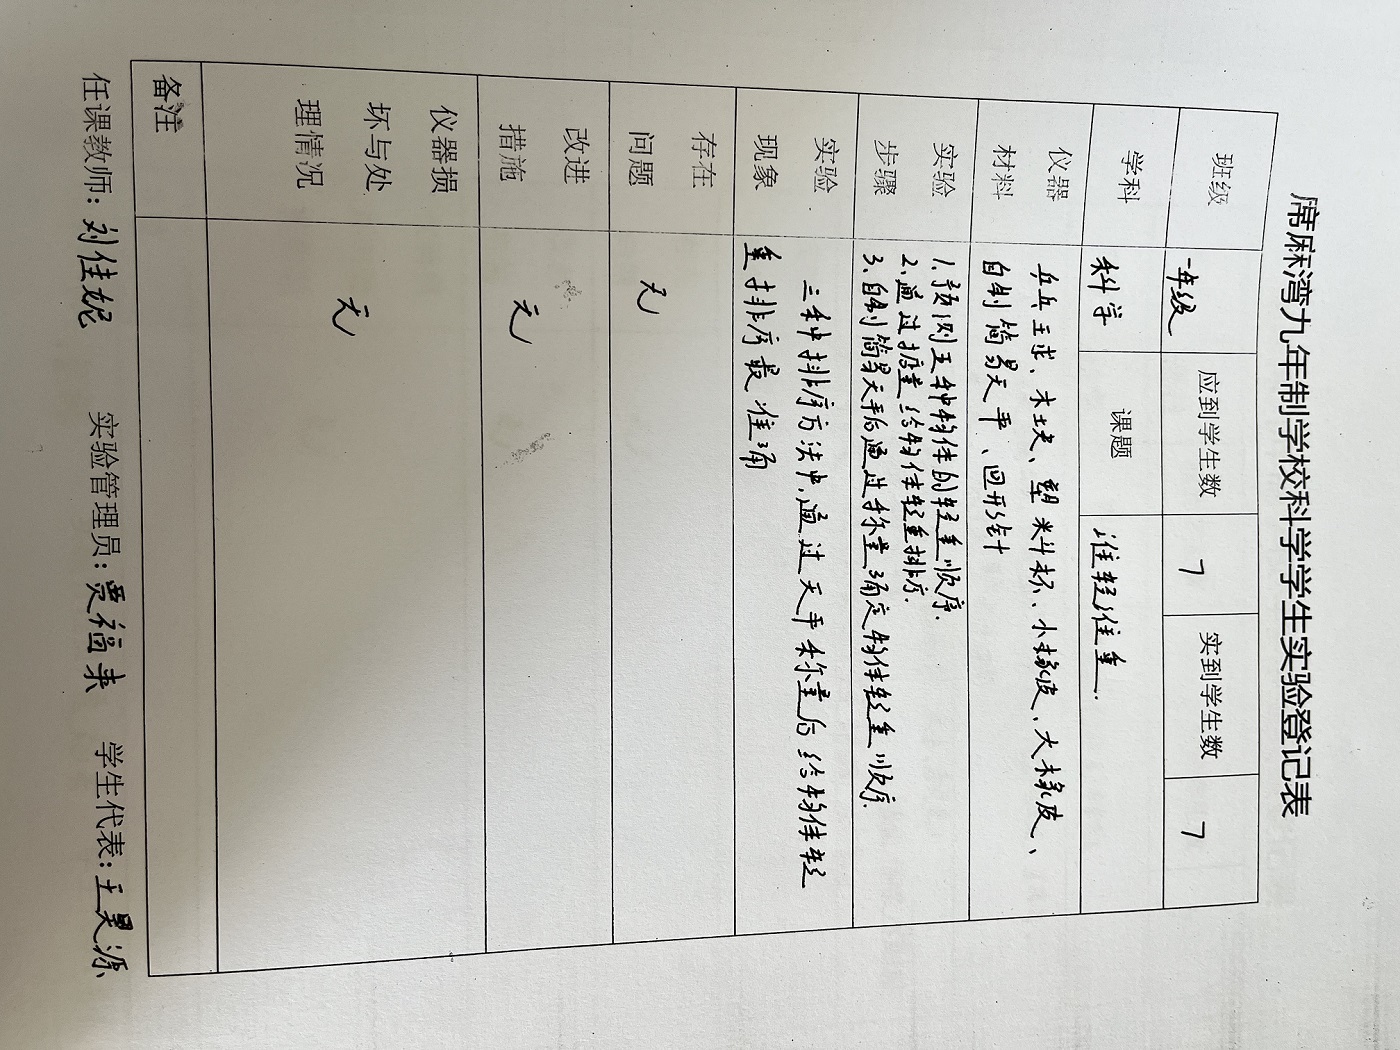 席麻湾九年制学校科学学生实验登记表
班级 一年级 应到学生数 7 实到学生数 7
学科 科学 课题 谁轻谁重.
仪器材料 乒乓球、木块、塑料杯、小橡皮、大橡皮、
自制简易天平、回形针
实验步骤 1.预测五种物体的轻重顺序.
2.通过掂量给物体轻重排序.
3.自制简易天平后通过称量确定物体轻重顺序.
实验现象 三种排序方法中,通过天平称量后给物体轻
重排序最准确
存在问题 无
改进措施 无
仪器损坏与处理情况 无
备注
任课教师:刘佳妮 实验管理员:贾福来 学生代表:王昊源